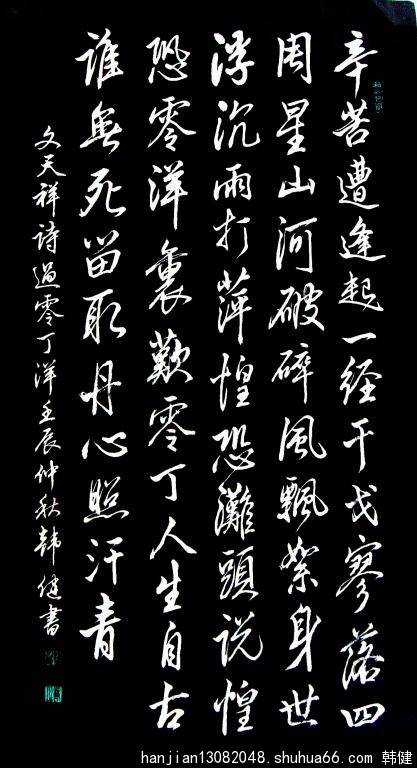 辛苦遭逢起一經干戈寥落四
周星山河破碎風飄絮身世
浮沉雨打萍惶恐灘頭说惶
恐零洋裏歎零丁人生自古
誰無死留取丹心照汗青
文天祥詩過零丁洋壬辰仲秋韓健書
hanjian13082048.shuhua66.com 韩健